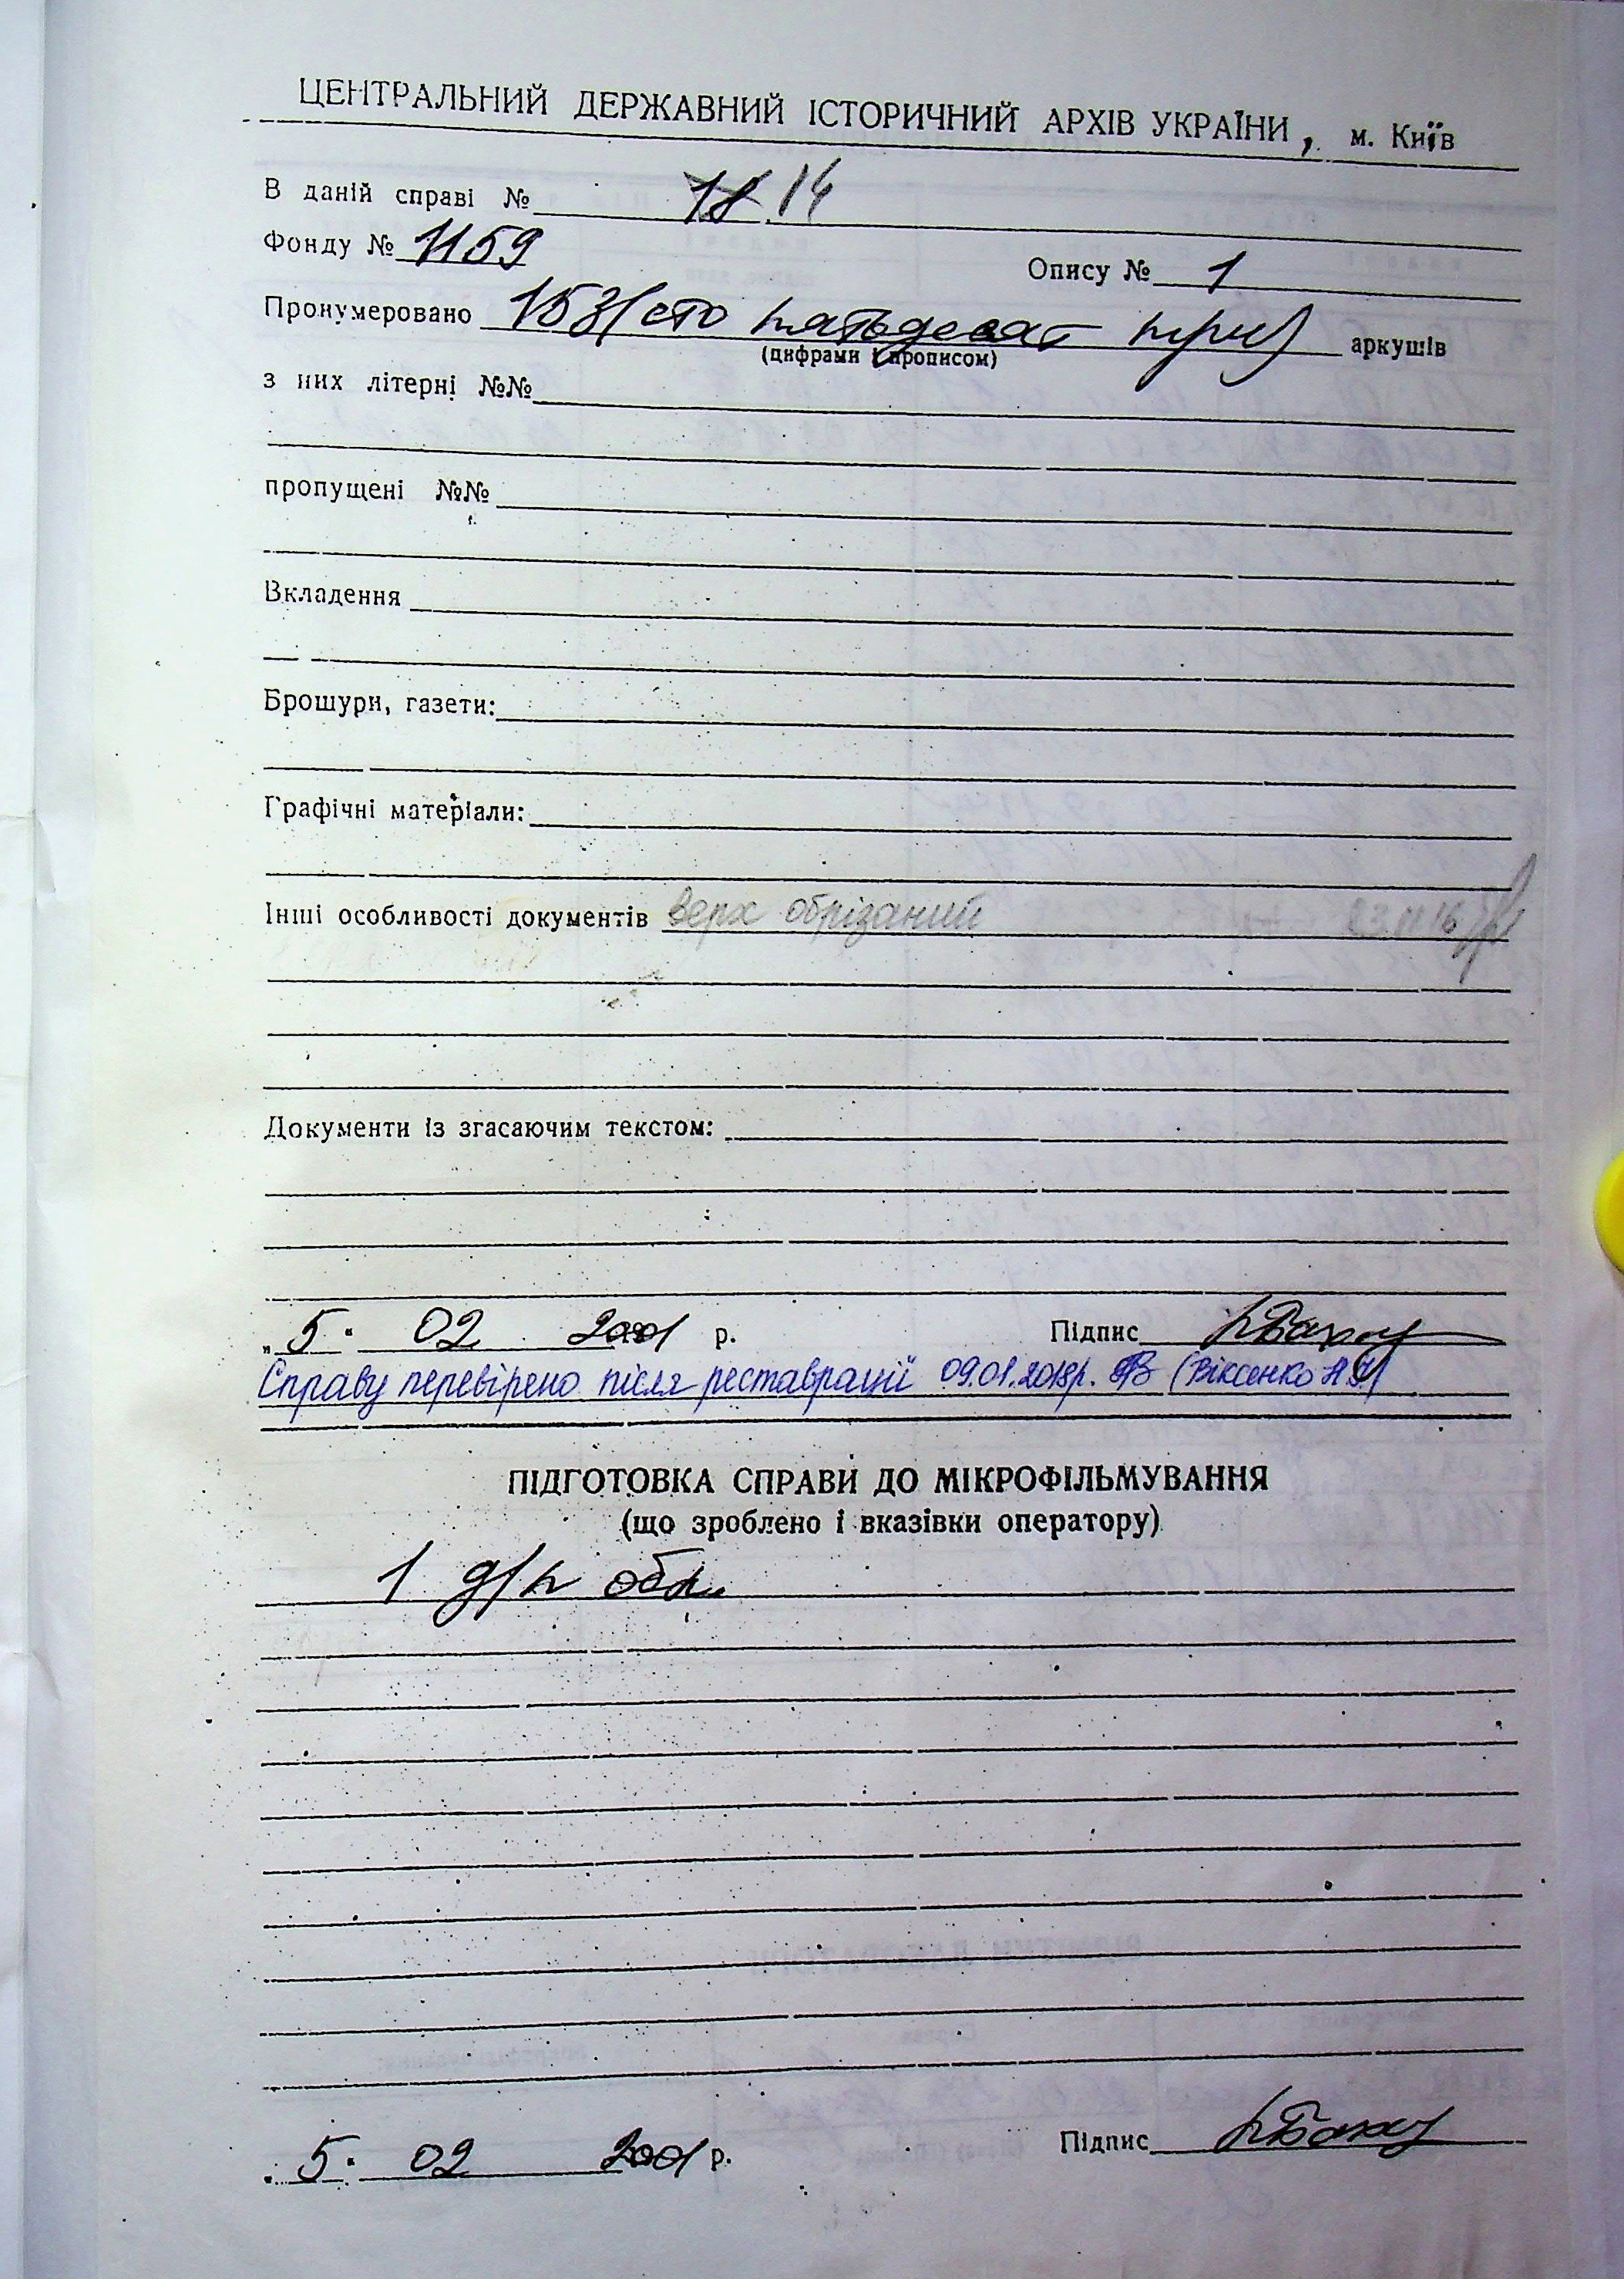 ЦЕНТРАЛЬНИЙ ДЕРЖАВНИЙ ІСТОРИЧНИЙ АРХІВ УКРАЇНИ, м. Київ
В даній справі № 18 14
Фонду № 1159 Опису № 1
Пронумеровано 153 (сто пятьдесят три) аркушів
(цифрами і прописом)
з них літерні №№
пропущені №№
Вкладення
Брошури, газети:
Графічні матеріали:
Інші особливості документів верх обрізаний 23.11.16
Документи із згасаючим текстом:
„ 5 " 02 2001 р. Підпис
Справу перевірено після реставрації 09.01.2018р. (Віксенко Н.
ПІДГОТОВКА СПРАВИ ДО МІКРОФІЛЬМУВАННЯ
(що зроблено і вказівки оператору)
1 д/н
„ 5 " 02 2001 р. Підпис